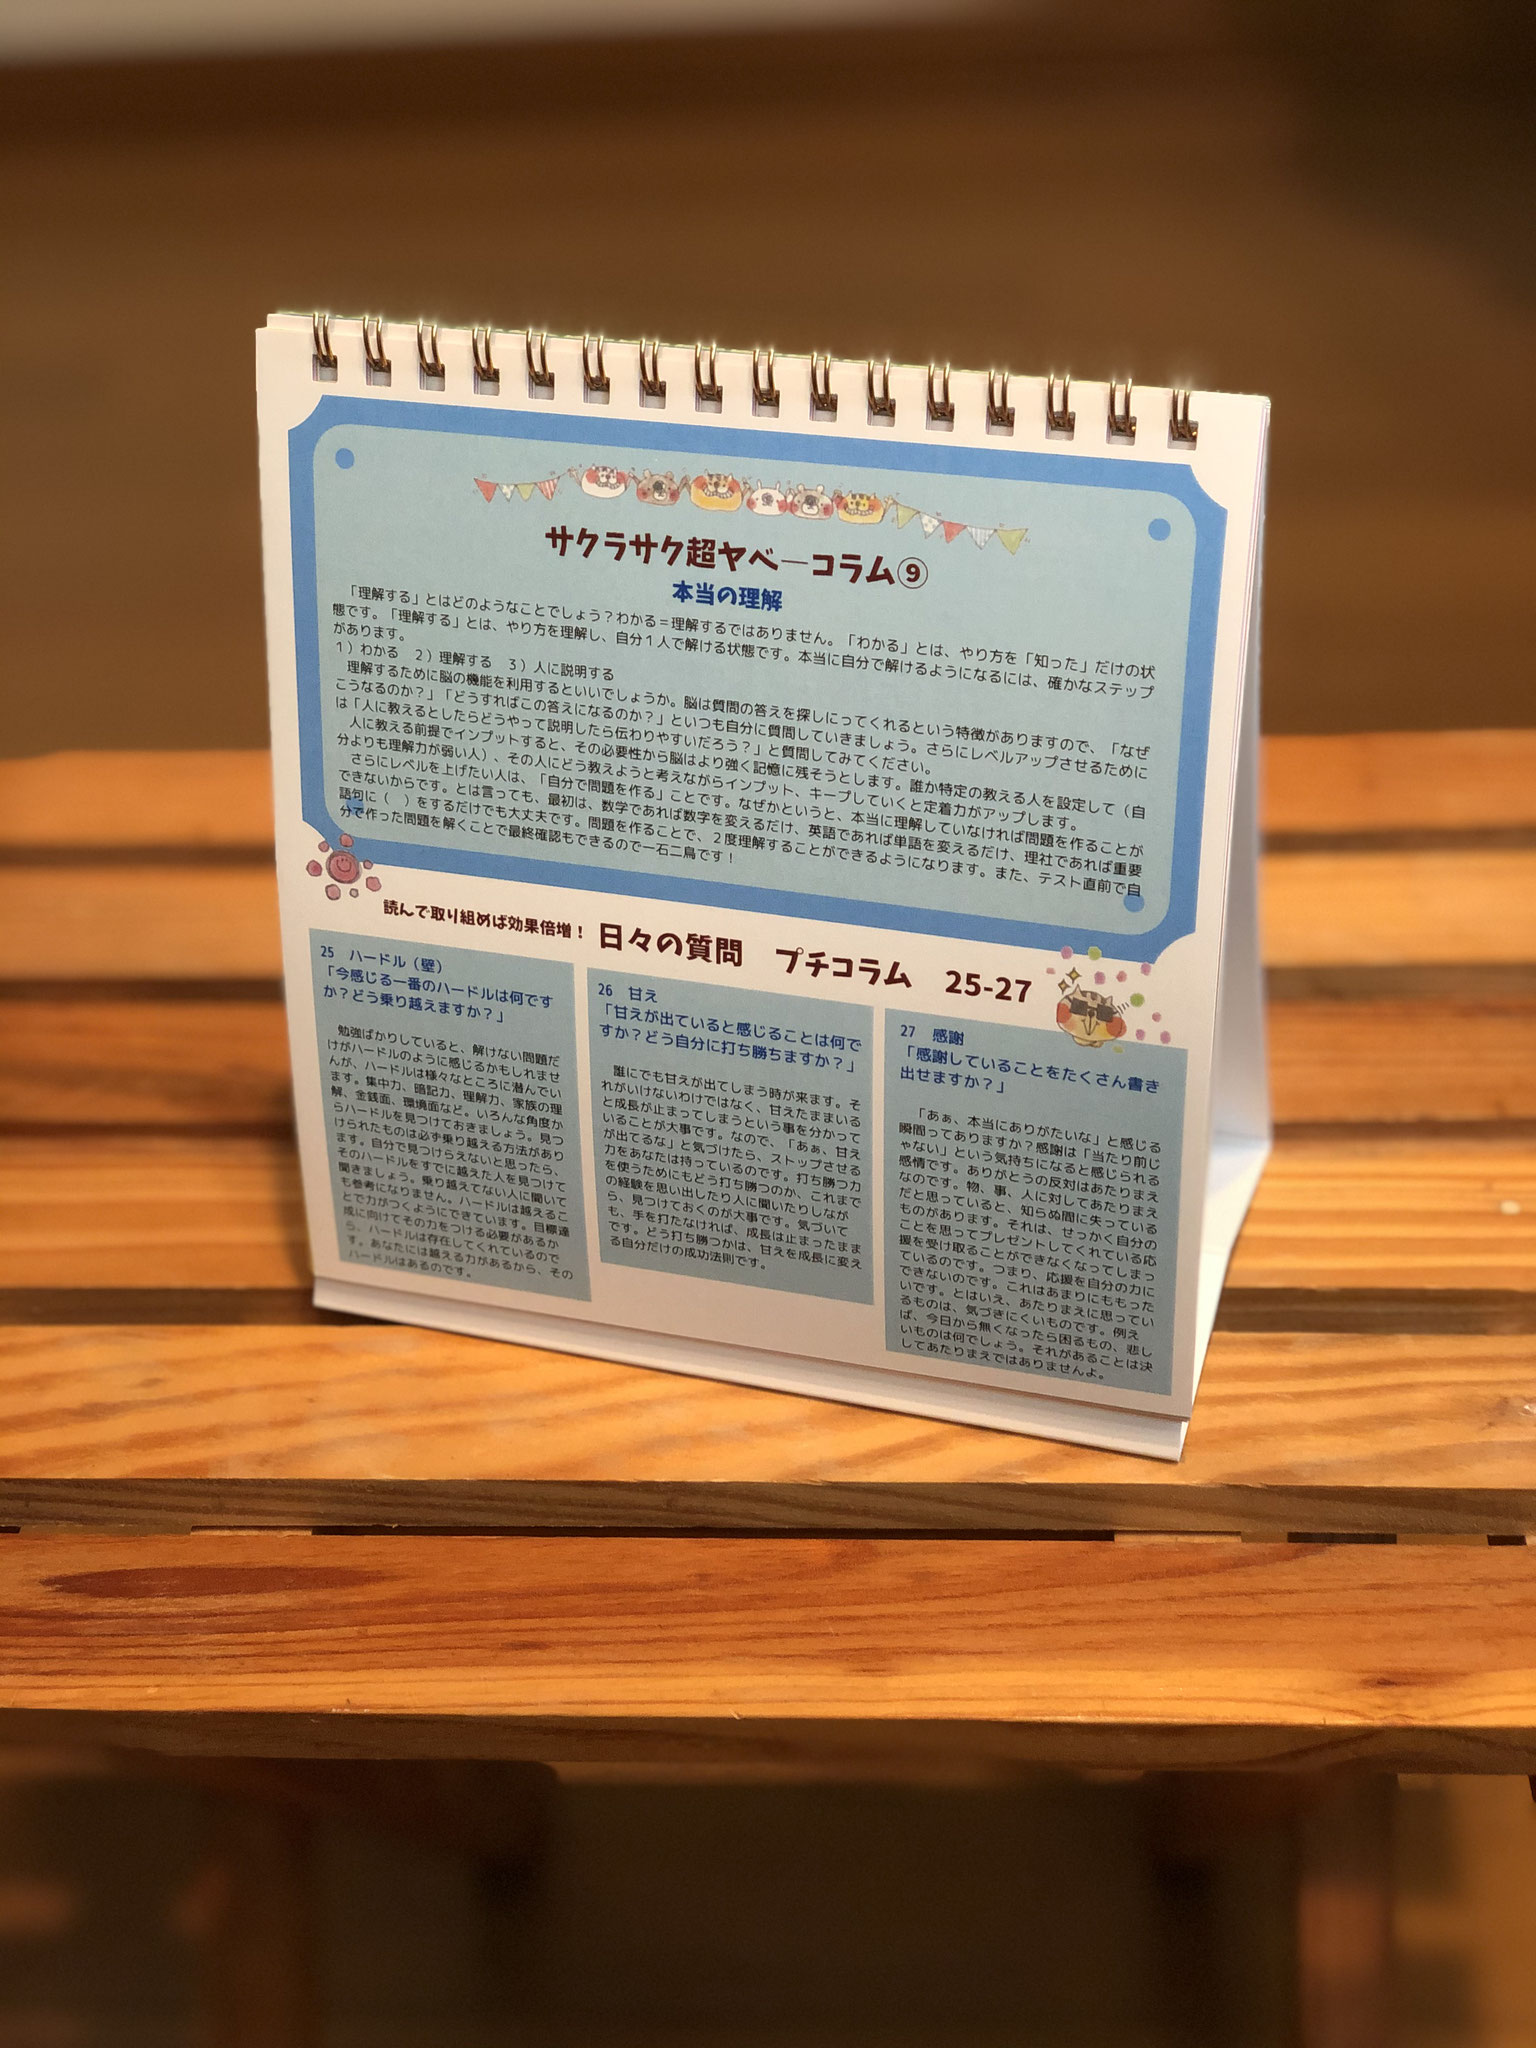 サクラサク超ヤベーコラム⑨
本当の理解
「理解する」とはどのようなことでしょう？わかる＝理解するではありません。「わかる」とは、やり方を「知った」だけの状
態です。「理解する」とは、やり方を理解し、自分１人で解ける状態です。本当に自分で解けるようになるには、確かなステップ
があります。
１）わかる　２）理解する　３）人に説明する
理解するために脳の機能を利用するといいでしょうか。脳は質問の答えを探しにってくれるという特徴がありますので、「なぜ
こうなるのか？」「どうすればこの答えになるのか？」といつも自分に質問していきましょう。さらにレベルアップさせるために
は「人に教えるとしたらどうやって説明したら伝わりやすいだろう？」と質問してみてください。
人に教える前提でインプットすると、その必要性から脳はより強く記憶に残そうとします。誰か特定の教える人を設定して（自
分よりも理解力が弱い人）、その人にどう教えようと考えながらインプット、キープしていくと定着力がアップします。
さらにレベルを上げたい人は、「自分で問題を作る」ことです。なぜかというと、本当に理解していなければ問題を作ることが
できないからです。とは言っても、最初は、数学であれば数字を変えるだけ、英語であれば単語を変えるだけ、理社であれば重要
語句に（　）をするだけでも大丈夫です。問題を作ることで、２度理解することができるようになります。また、テスト直前で自
分で作った問題を解くことで最終確認もできるので一石二鳥です！
読んで取り組めば効果倍増！ 日々の質問　プチコラム　25-27
25　ハードル（壁）
「今感じる一番のハードルは何です
か？どう乗り越えますか？」
勉強ばかりしていると、解けない問題だ
けがハードルのように感じるかもしれませ
んが、ハードルは様々なところに潜んでい
ます。集中力、暗記力、理解力、家族の理
解、金銭面、環境面など。いろんな角度か
らハードルを見つけておきましょう。見つ
けられたものは必ず乗り越える方法があり
ます。自分で見つけらえないと思ったら、
そのハードルをすでに越えた人を見つけて
聞きましょう。乗り越えてない人に聞いて
も参考になりません。ハードルは越えるこ
とで力がつくようにできています。目標達
成に向けてその力をつける必要があるか
ら、ハードルは存在してくれているので
す。あなたには越える力があるから、その
ハードルはあるのです。
26　甘え
「甘えが出ていると感じることは何で
すか？どう自分に打ち勝ちますか？」
誰にでも甘えが出てしまう時が来ます。そ
れがいけないわけではなく、甘えたままいる
と成長が止まってしまうという事を分かって
いることが大事です。なので、「あぁ、甘え
が出てるな」と気づけたら、ストップさせる
力をあなたは持っているのです。打ち勝つ力
を使うためにもどう打ち勝つのか、これまで
の経験を思い出したり人に聞いたりしなが
ら、見つけておくのが大事です。気づいて
も、手を打たなければ、成長は止まったまま
です。どう打ち勝つかは、甘えを成長に変え
る自分だけの成功法則です。
27　感謝
「感謝していることをたくさん書き
出せますか？」
「あぁ、本当にありがたいな」と感じる
瞬間ってありますか？感謝は「当たり前じ
ゃない」という気持ちになると感じられる
感情です。ありがとうの反対はあたりまえ
なのです。物、事、人に対してあたりまえ
だと思っていると、知らぬ間に失っている
ものがあります。それは、せっかく自分の
ことを思ってプレゼントしてくれている応
援を受け取ることができなくなってしまっ
ているのです。つまり、応援を自分の力に
できないのです。これはあまりにももった
いです。とはいえ、あたりまえに思ってい
るものは、気づきにくいものです。例え
ば、今日から無くなったら困るもの、悲し
いものは何でしょう。それがあることは決
してあたりまえではありませんよ。